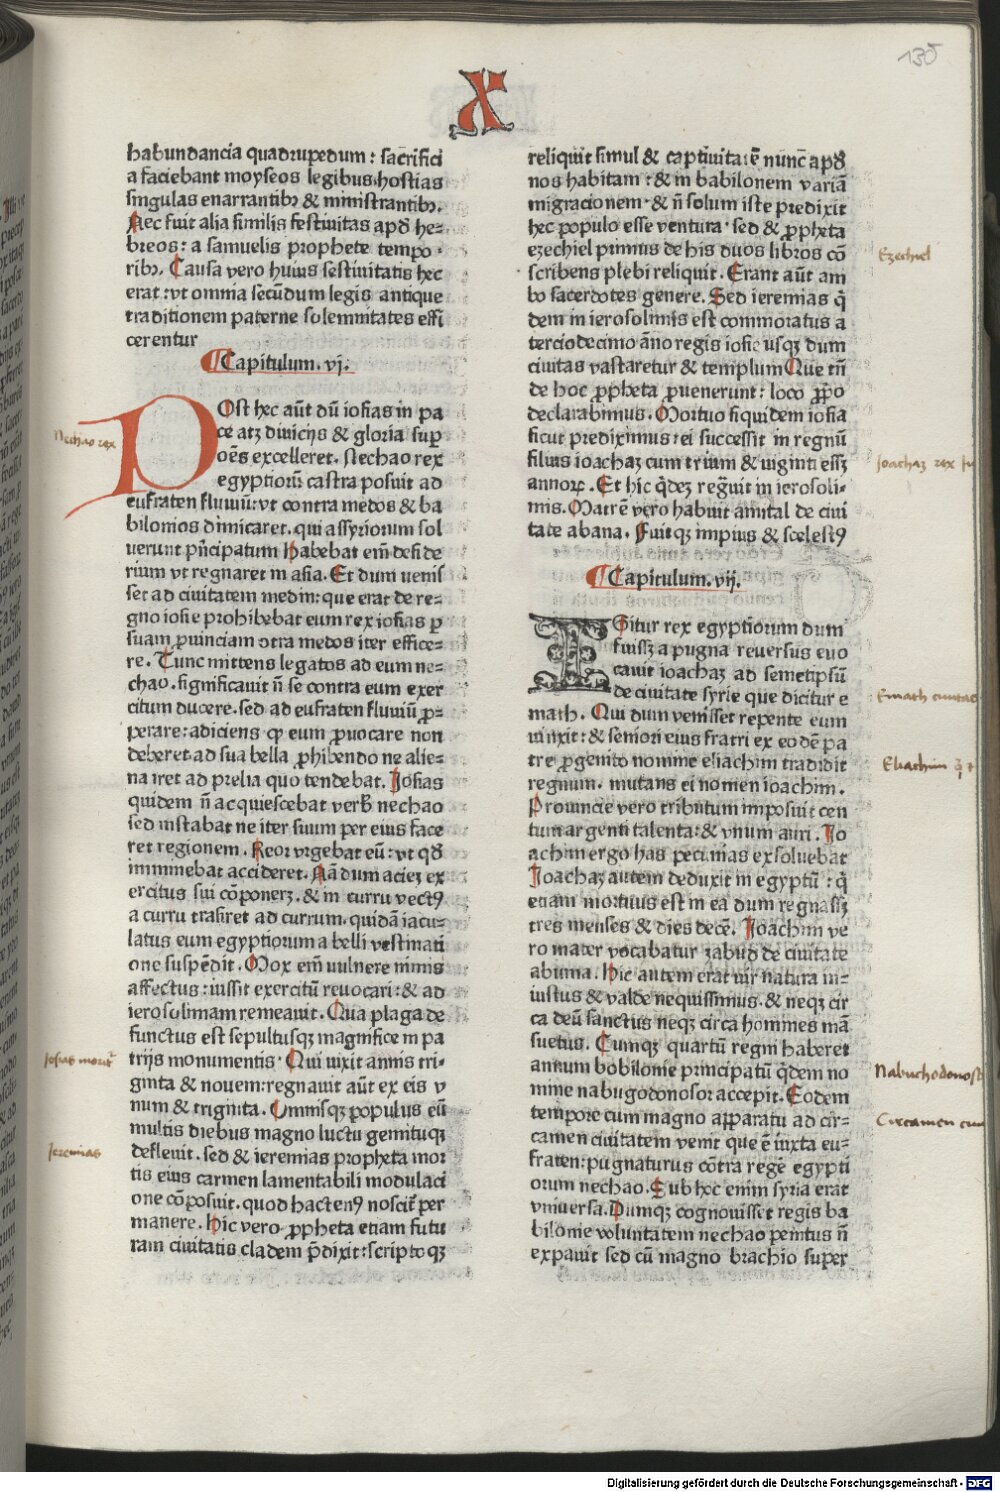 X
135
habundancia quadrupedum : sacrifici
a faciebant moyseos legibus hostias
singulas enarrantibꝫ & ministrantibꝫ.
Aec fuit alia similis festivitas apd he=
breos : a samuelis prophete tempo·
ribꝫ. Causa vero huius festivitatis hec
erat : vt omnia secūdum legis antique
traditionem paterne solemnitates effi
cerentur
Capitulum. vj.
POst hec aūt dū iosias in pa
ce atꝫ divicijs & gloria sup
oēs excelleret. Nechao rex
egyptiorū castra posuit ad
eufraten fluviū: vt contra medos & ba
bilonios dimicaret. qui assyriorum sol
verunt pñcipatum Habebat em̄ deside
rium vt regnaret in asia. Et dum venis
set ad civitatem medin: que erat de re=
gno iosie prohibebat eum rex iosias ꝑ
suam ꝓvinciam ↄtra medos iter effice=
re. Tunc mittens legatos ad eum ne=
chao. significavit n̄ se contra eum exer
citum ducere. sed ad eufraten fluviū ꝓ=
perare: adiciens ꝙ eum ꝓvocare non
deberet. ad sua bella ꝓhibendo ne alie=
na iret ad prelia quo tendebat. Josias
quidem n̄ acquiescebat verb nechao
sed instabat ne iter suum per eius face
ret regionem. Reor vrgebat eū: vt qd
imminebat accideret. Nā dum aciez ex
ercitus sui cōponerꝫ. & in curru vectꝰ
a curru trāsiret ad currum. quidā iacu=
latus eum egyptiorum a belli vestinati
one suspēdit. Mox em̄ vulnere nimis
affectus : iussit exercitū revocari : & ad
ierosolimam remeavit. Qua plaga de
functus est sepultusqꝫ magnifice in pa
trijs monumentis· Qui vixit annis tri=
ginta & novem: regnavit aūt ex eis v
num & triginta. Omnisqꝫ populus eū
multis diebus magno luctu gemituqꝫ
deflevit. sed & ieremias propheta mor
tis eius carmen lamentabili modulaci
one cōposuit. quod hactenꝰ noscit per
manere. Hic vero ꝓpheta etiam futu
ram civitatis cladem p̄dixit: scripto qꝫ
reliquit simul & captivitatē nunc apd
nos habitam : & in babilonem variā
migracionem· & n̄ solum iste predixit
hec populo esse ventura· sed & ꝓpheta
ezechiel primus de his duos libros cō
scribens plebi reliquit. Erant aūt am
bo sacerdotes genere. Sed ieremias q̄
dem in ierosolimis est commoratus a
terciodecimo āno regis iosie usqꝫ dum
civitas vastaretur & templum Que tn̄
de hoc ꝓpheta ꝓvenerunt : loco ꝓpo
declarabimus. Mortuo siquidem iosia
sicut prediximus ei successit in regnū
filius ioachaꝫ cum trium & viginti essꝫ
annoꝝ. Et hic q̄dez regꝯvit in ierosoli-
mis. Matrē vero habuit amital de civi
tate abana. Fuitqꝫ impius & scelestꝰ
Capitulum. vij.
IGitur rex egyptiorum dum
fuissꝫ a pugna reversus evo
cavit ioachaꝫ ad semetipsū
de civitate syrie que dicitur e
math. Qui dum venisset repente eum
vinxit : & seniori eius fratri ex eodē pa
tre ꝓgenito nomine eliachim tradidit
regnum. mutans ei nomen ioachim.
Provincie vero tributum imposuit cen
tum argenti talenta: & vnum auri. Jo
achim ergo has pecunias exsoluebat
Joachaꝫ autem deduxit in egyptū : q̄
etiam mortuus est in ea dum regnassꝫ
tres menses & dies decē. Joachim ve
ro mater vocabatur zabud de civitate
abuma. Hic autem erat vir natura in=
iustus & valde nequissimus. & neqꝫ cir
ca deū sanctus neqꝫ circa homines mā
suetus. Cumqꝫ quartū regni haberet
annum bobilonie principatū q̄dem no
mine nabugodonosor accepit. Eodem
tempore cum magno apparatu ad cir=
camen civitatem venit que ē iuxta eu=
fraten: pugnaturus cōtra regē egypti
orum nechao. Sub hoc enim syria erat
vniversa. Dumqꝫ cognovisset regis ba
bilonie voluntatem nechao penitus n̄
expavit sed cū magno brachio super
Nechao rex
Josias morit̄
Jeremias
Ezechiel
Joachaz rex
Emath civitas
Eliachim
Nabuchodonos
Circamen
Digitalisierung gefördert durch die Deutsche Forschungsgemeinschaft - DFG